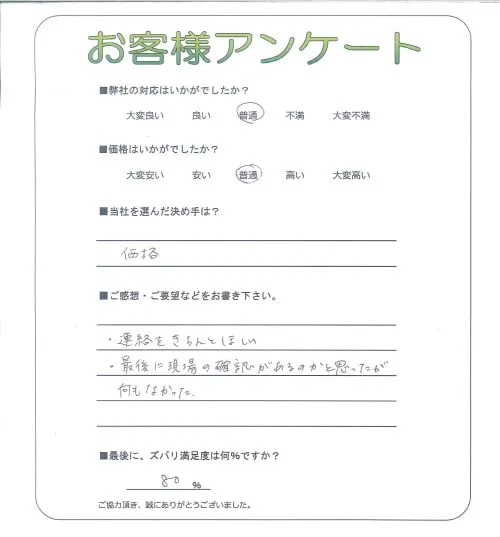 お客様アンケート
■弊社の対応はいかがでしたか？
大変良い 良い 普通 不満 大変不満
■価格はいかがでしたか？
大変安い 安い 普通 高い 大変高い
■当社を選んだ決め手は？
価格
■ご感想・ご要望などをお書き下さい。
・連絡をきちんとほしい
・最後に現場の確認があるのかと思ったが
何もなかった。
■最後に、ズバリ満足度は何％ですか？
80 ％
ご協力頂き、誠にありがとうございました。